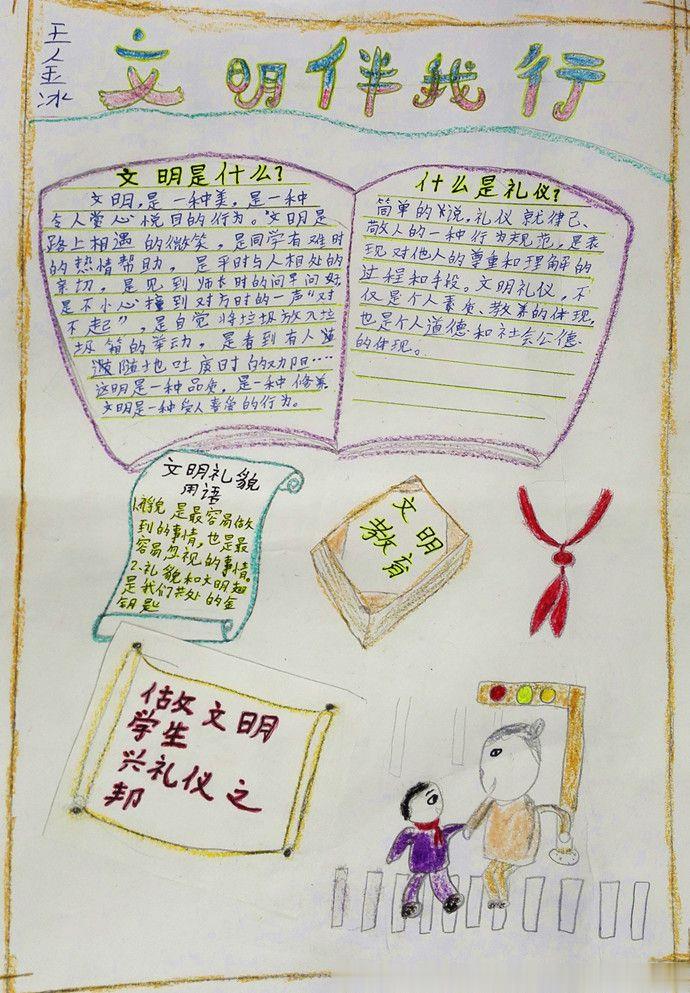 王金冰
文明伴我行
文明是什么？
文明,是一种美，是一种
令人赏心悦目的行为。文明是
路上相遇的微笑，是同学有难时
的热情帮助，是平时与人相处的
亲切，是见到师长时的问早问好，
是不小心撞到对方时的一声“对
不起”，是自觉将垃圾放入垃
圾箱的举动，是看到有人
随地吐痰时的劝阻…
文明是一种品质，是一种修养
文明是一种受人喜爱的行为。
什么是礼仪？
简单的说，礼仪就律己、
敬人的一种行为规范，是表
现对他人的尊重和理解的
过程和手段。文明礼仪，不
仅是个人素质、教养的体现，
也是个人道德和社会公德
的体现。
文明礼貌
用语
1.礼貌是最容易做
到的事情，也是最
容易忽视的事情。
2.礼貌和文明
是我们共处的金
钥匙
文明
教育
做文明
学生
兴礼仪之
邦